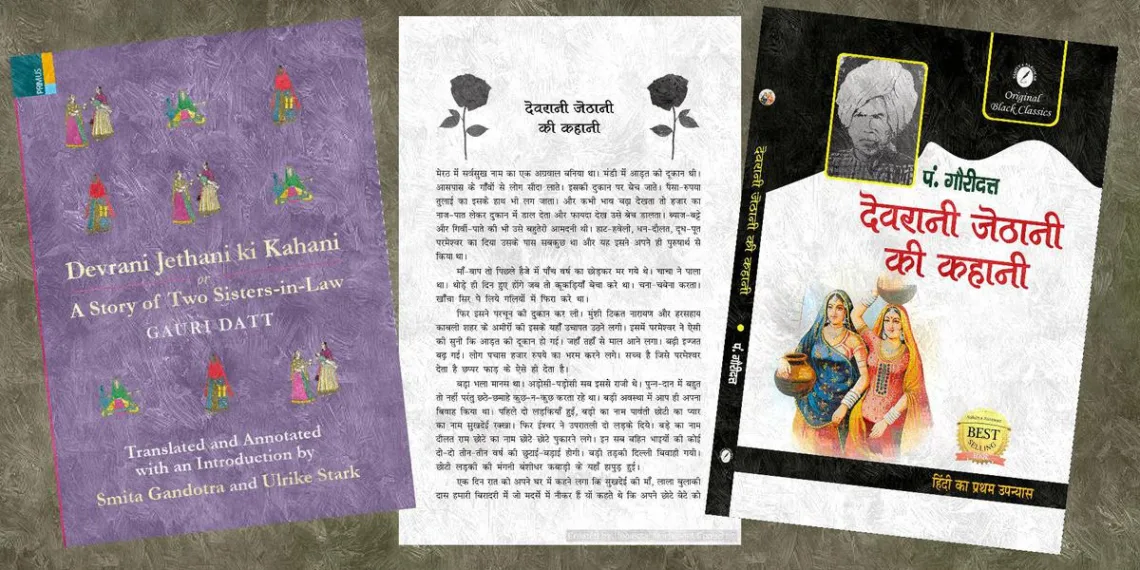 PRIMUS
Devrani Jethani ki Kahani
or
A Story of Two Sisters-in-Law
GAURI DATT
Translated and Annotated
with an Introduction by
Smita Gandotra and Ulrike Stark
देवरानी जेठानी
की कहानी
मेरठ में सर्वसुख नाम का एक अग्रवाल बनिया था। मंडी में आड़त की दूकान थी।
आसपास के गाँवों से लोग सौदा लाते। इसकी दूकान पर बेच जाते। पैसा-रुपया
तुलाई का इसके हाथ भी लग जाता। और कभी भाव चढ़ा देखता तो हजार का
नाज-पात लेकर दुकान में डाल देता और फायदा देख उसे बेच डालता। ब्याज-बट्टे
और गिर्वी-पाते की भी उसे बहुतेरी आमदनी थी। हाट-हवेली, धन-दौलत, दूध-पूत
परमेश्वर का दिया उसके पास सबकुछ था और यह इसने अपने ही पुरुषार्थ से
किया था।
माँ-बाप तो पिछले हैजे में पाँच वर्ष का छोड़कर मर गये थे। चाचा ने पाला
था। थोड़े ही दिन हुए होंगे जब तो कूकड़ियाँ बेचा करे था। चना-चबेना करता।
खौंचा सिर पे लिये गलियों में फिरा करे था।
फिर इसने परचून की दुकान कर ली। मुंशी टिकत नारायण और हरसहाय
काबली शहर के अमीरों की इसके यहाँ उचापत उठने लगी। इसमें परमेश्वर ने ऐसी
की सुनी कि आड़त की दूकान हो गई। जहाँ तहाँ से माल आने लगा। बड़ी इज्जत
बढ़ गई। लोग पचास हजार रुपये का भरम करने लगे। सच्च है जिसे परमेश्वर
देता है छप्पर फाड़ के ऐसे हो देता है।
बड़ा भला मानस था। अड़ोसी-पड़ोसी सब इससे राजी थे। पुन्न-दान में बहुत
तो नहीं परंतु छठे-छमाहे कुछ-न-कुछ करता रहे था। बड़ी अवस्था में आप ही अपना
विवाह किया था। पहिले दो लड़कियाँ हुईं, बड़ी का नाम पार्वती छोटी का प्यार
का नाम सुखदेई रक्खा। फिर ईश्वर ने उपरातली दो लड़के दिये। बड़े का नाम
दौलत राम छोटे का नाम छोटे छोटे पुकारने लगे। इन सब बहिन भाइयों की कोई
दो-दो तीन-तीन वर्ष की छुटाई-बड़ाई होगी। बड़ी लड़की दिल्ली बिवाही गयी।
छोटी लड़की की मंगनी बंशीधर कबाड़ी के यहाँ हापुड़ हुई।
एक दिन रात को अपने घर में कहने लगा कि सुखदेई की माँ, लाला बुलाकी
दास हमारी बिरादरी में जो मदर्से में नौकर हैं यों कहते थे कि अपने छोटे बेटे को
Original
Black Classics
पं. गौरीदत्त
देवरानी जेठानी
की कहानी
BEST
SELLING
हिंदी का प्रथम उपन्यास
देवरानी जेठानी की कहानी ● पं. गौरीदत्त